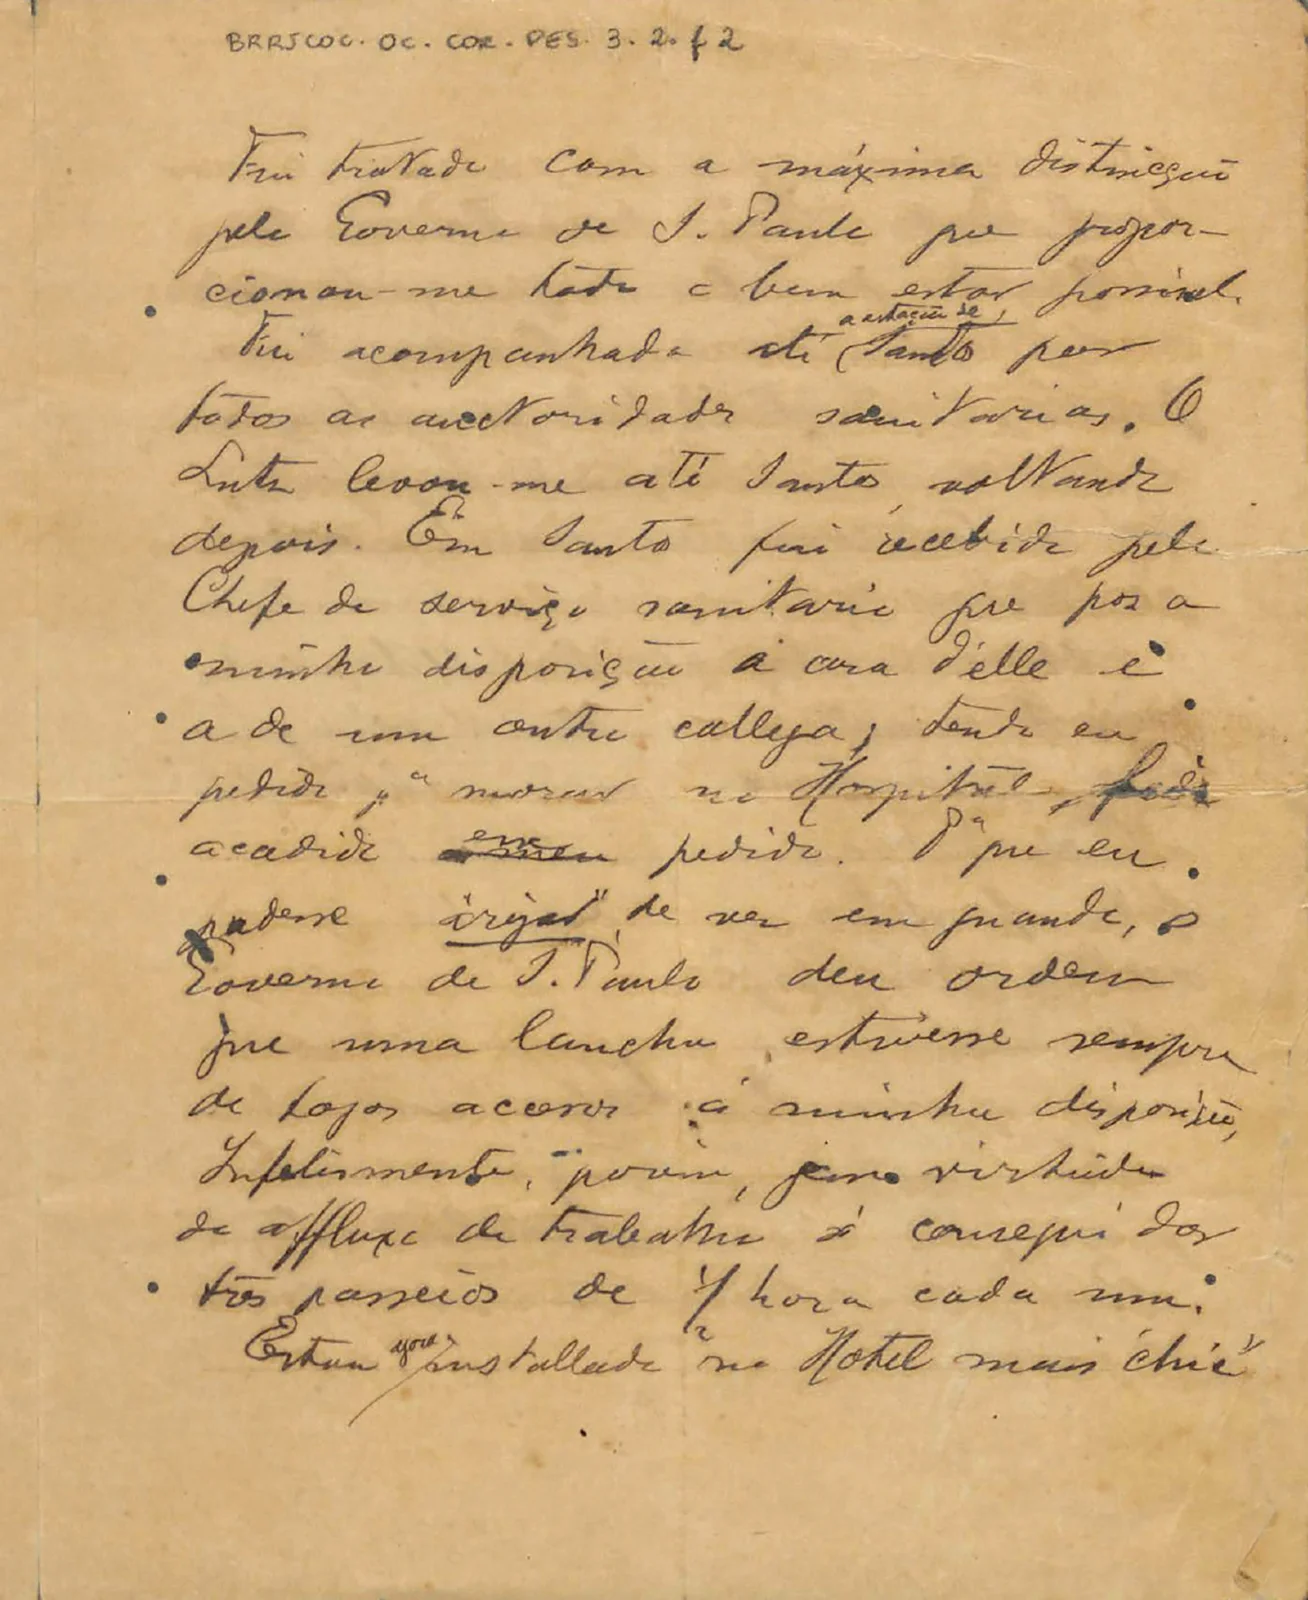 BRRJCOC. OC. COR. PES. 3. 2. f 2
Fui tratado com a máxima distincção
pelo Governo de S. Paulo que propor-
cionou-me todo o bem estar possivel.
a estação de
Fui acompanhado até Santos por
todos as auctoridades sanitarias. O
Lutz levou-me até Santos voltando
depois. Em Santos fui recebido pelo
Chefe do serviço sanitario que poz a
minha disposição a casa d'elle e
a de um outro collega; tendo eu
pedido pª morar no Hospital,
acedido esse pedido. Pª que eu
podesse "orijar" de ver em grande, o
Governo de S. Paulo deu ordem
que uma lancha estivesse sempre
de fogos accesos á minha disposição,
Infelismente, porém, em virtude
do affluxo de trabalho só consegui dar
tres passeios de 1/2 hora cada um.
Estou agora installado no Hotel mais "chic"